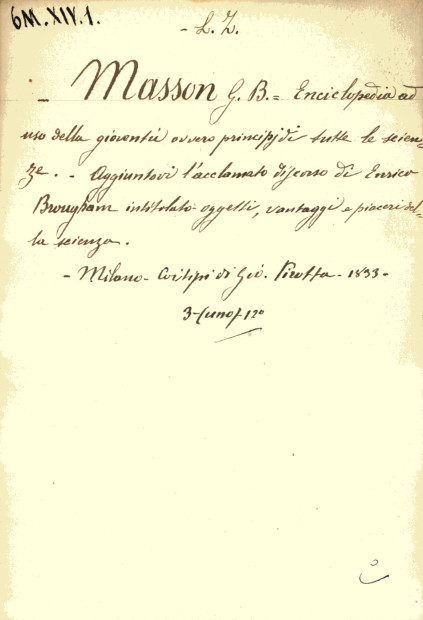 6M. XIV. 1.
- L. Z.
- Masson G. B. = Enciclopedia ad
uso della gioventù ovvero principj di tutte le scien=
ze. - Aggiuntovi l'acclamato discorso di Enrico
Brougham intitolato oggetti, vantaggi e piaceri del-
la scienza.
- Milano - Coi tipi di Gio. Pirotta - 1833 -
12º